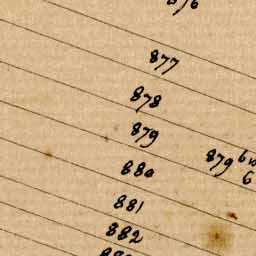 876
877
878
879
880
879
6
881
882